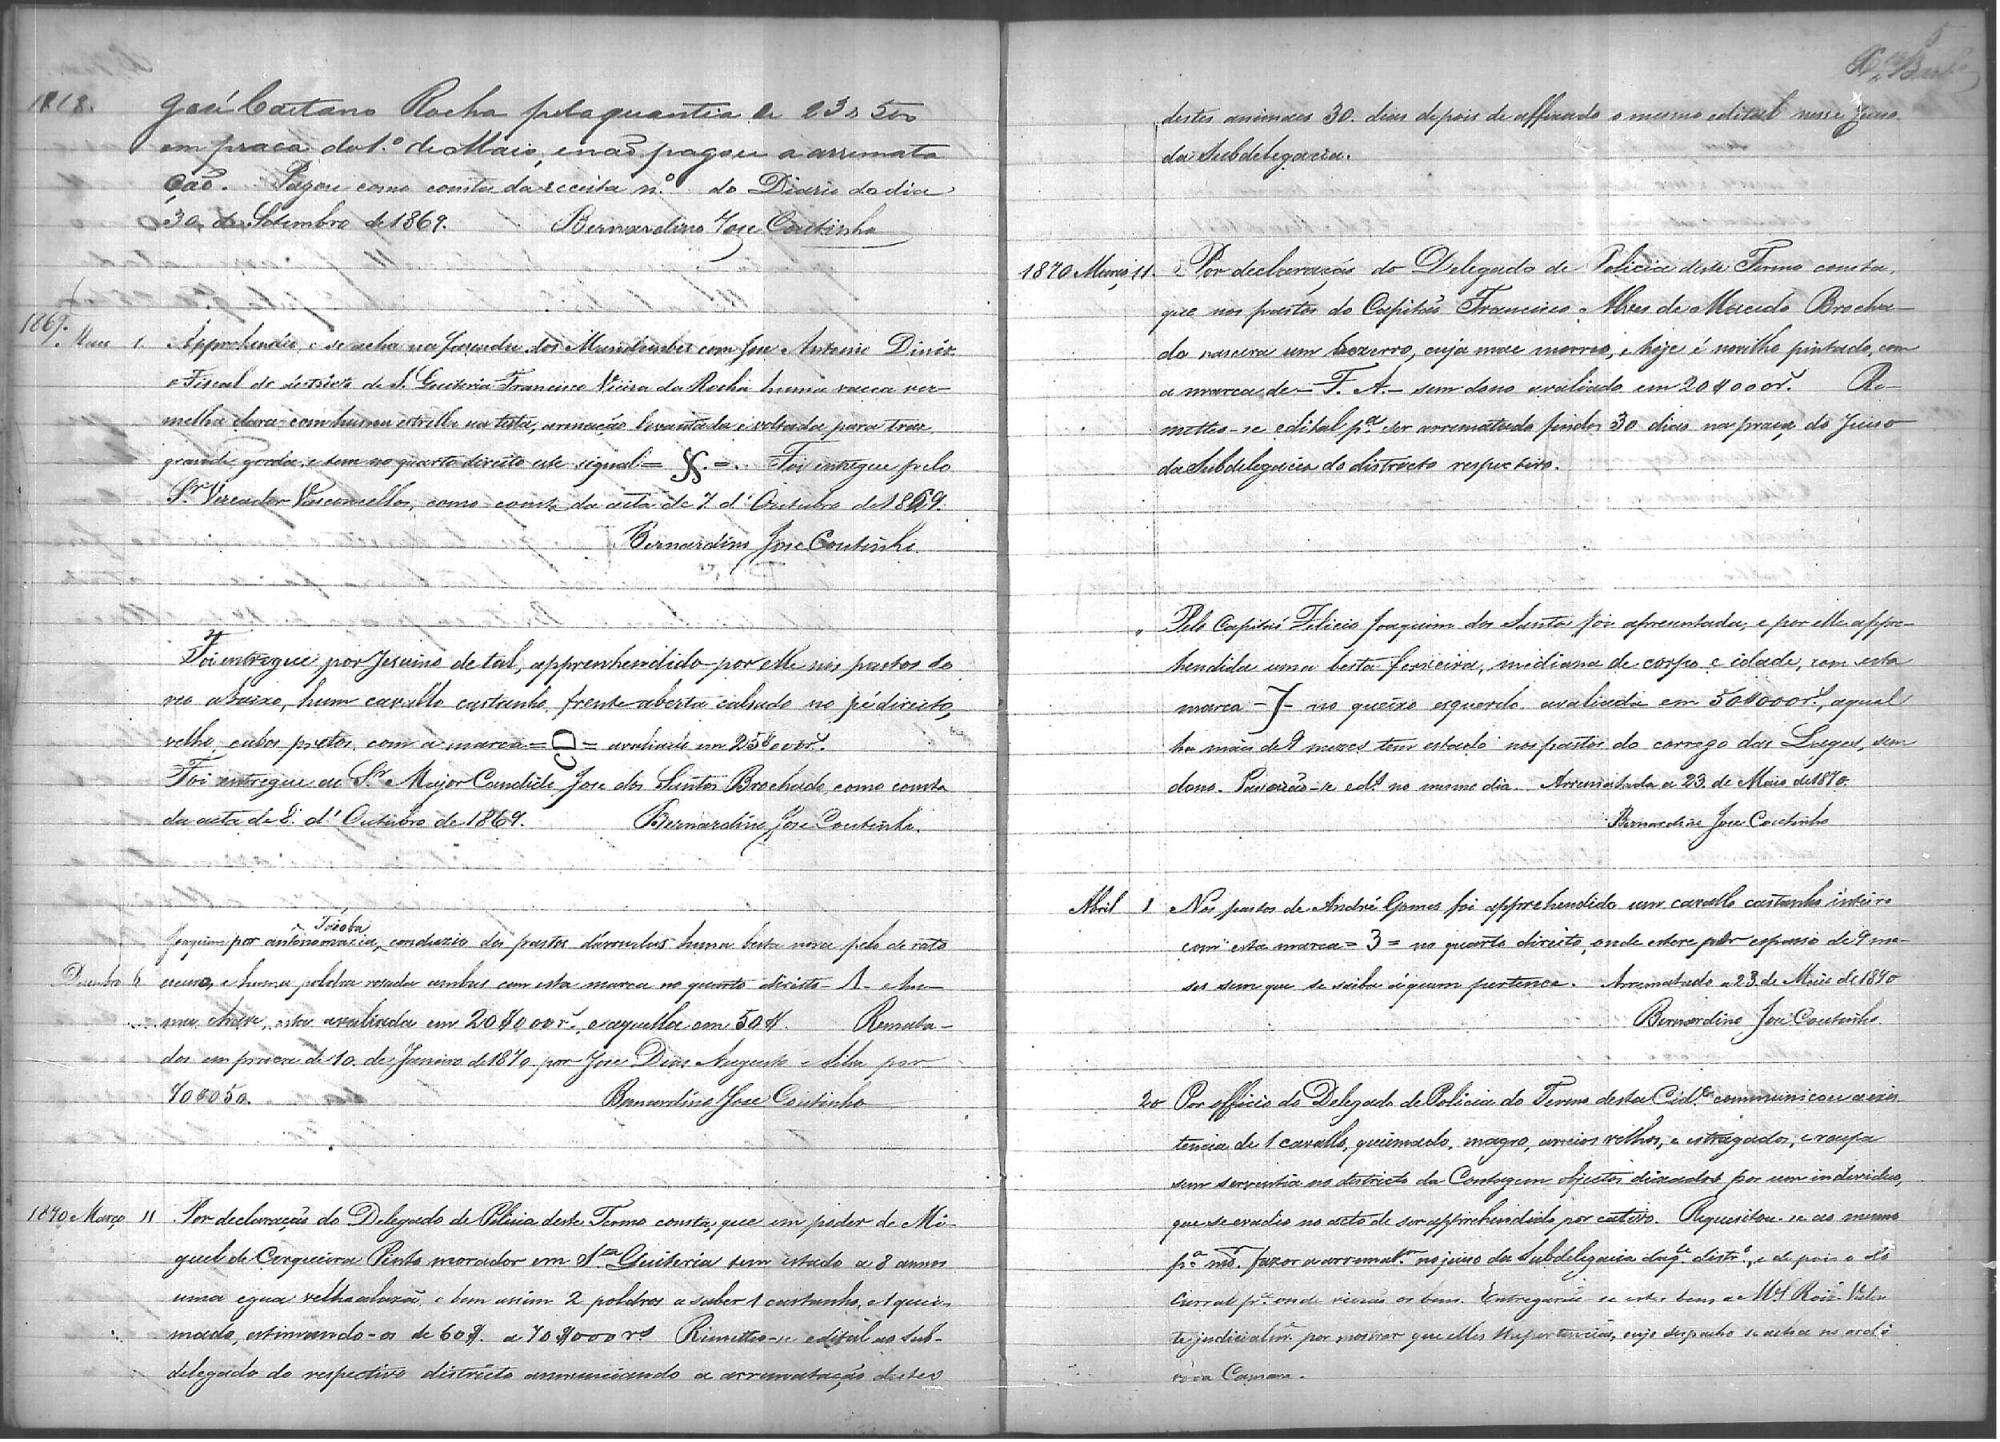 1868. José Caetano Rocha pela quantia de 23$500
em praca do 1.º de Maio, e não pagou a arremata
ção. Pagou como consta da receita n.º do Diario do dia
30 de Setembro de 1869. Bernardino Jose Coutinho
1869. 1. Apprehendeo, e se acha na fazenda dos Mundimbos com Jose Antonio Diniz
o Fiscal do destricto de S. Quiteria Francisco Vieira da Rocha huma vacca ver-
melha clara com huma estrella na testa, armação levantada e voltada para traz
grande, gorda, e tem no quarto direito este signal = = . Foi entregue pelo
Sr. Vereador Vasconcellos, como consta da acta de 7 d'Outubro de 1869.
Bernardino Jose Coutinho.
Foi entregue por Jesuino de tal, apprenhendido por elle nos pastos do
rio abaixo, hum cavallo castanho, frente aberta calsado no pé direito,
velho, cabos pretos, com a marca = CD = avaliado em 25$000 rs.
Foi entregue ao Sr. Major Candido Jose dos Santos Brochado, como consta
da acta de 8 d'Outubro de 1869. Bernardino Jose Coutinho.
Joaquim por antonomazia Tioba, conduzio dos pastos huma besta nova pelo de rato
Dezembro 6 escuro, e huma poldra rosada ambas com esta marca no quarto direito
esta avaliada em 20$000 rs, e aquella em 50$. Remata-
dos em praca de 10 de Janeiro de 1870 por Jose Dias Augusto e Silva por
70$050. Bernardino Jose Coutinho
1870 Março 11 Por declaração do Delegado de Policia deste Termo consta, que em poder de Mi-
guel de Cerqueira Pinto morador em Sta. Quiteria tem estado a 8 annos
uma egua velha alazã, e bem assim 2 poldros a saber 1 castanho, e 1 quei-
mado, estimando-os de 60$. a 70$000 rs Remetteo-se edital ao Sub-
delegado do respectivo districto annunciando a arrematação destes
5
destes animaes 30 dias depois de affixado o mesmo edital nesse Juiso
da Subdelegacia.
1870 Março 11. Por declaração do Delegado de Policia deste Termo consta,
que nos pastos do Capitão Francisco Alves de Macedo Brocha-
do nascera um bezerro, cuja mae morreo, e hoje é novilho pintado, com
a marca de - F. A. - sem dono avaliado em 20$000 rs. Re-
metteo-se edital pa. ser arrematado findos 30 dias na praça do Juiso
da Subdelegacia do districto respectivo.
" Pelo Capitão Felicio Joaquim dos Santos foi apresentada, e por elle appre-
hendida uma besta, mediana de corpo e idade, com esta
marca - 7 - no queixo esquerdo avaliada em 50$000 rs., aqual
ha mais de 9 mezes tem estado nos pastos do corrego das Lages, sem
dono. Passarão-se edes. no mesmo dia. Arrematada a 23 de Maio de 1870.
Bernardino Jose Coutinho
Abril 1 Nos pastos de André Gomes foi apprehendido um cavallo castanho inteiro
com esta marca = 3 = no quarto direito, onde esteve por espasso de 9 me-
ses sem que se saiba á quem pertence. Arrematado a 23 de Maio de 1870
Bernardino Jose Coutinho.
20 Por officio do Delegado de Policia do Termo desta Cide. communicou a exis
tencia de 1 cavallo, queimado, magro, arreios velhos, e estragados, e roupa
sem serventia no districto da Contagem objectos deixados por um individuo,
que se evadio no acto de ser apprehendido por cativo. Requesitou-se ao mesmo
pa. fazer a arremat. no juiso da Subdelegacia daqle. distro., e depois
pa. onde os bens. Entregarão se estes bens a
por mostrar que elles lhe pertencião, cujo despacho se acha no
Camara.